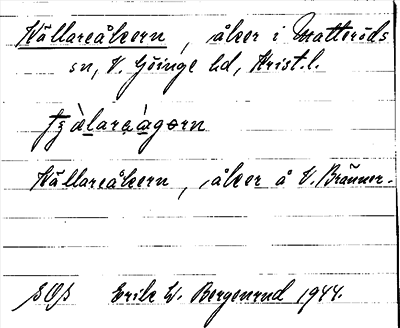 Källareåkern, åker i Matteröds
sn, V. Göinge hd, Krist. l.
Källareåkern, åker å V. Bränner.
SOS Erik W. Bergenrud 1944.